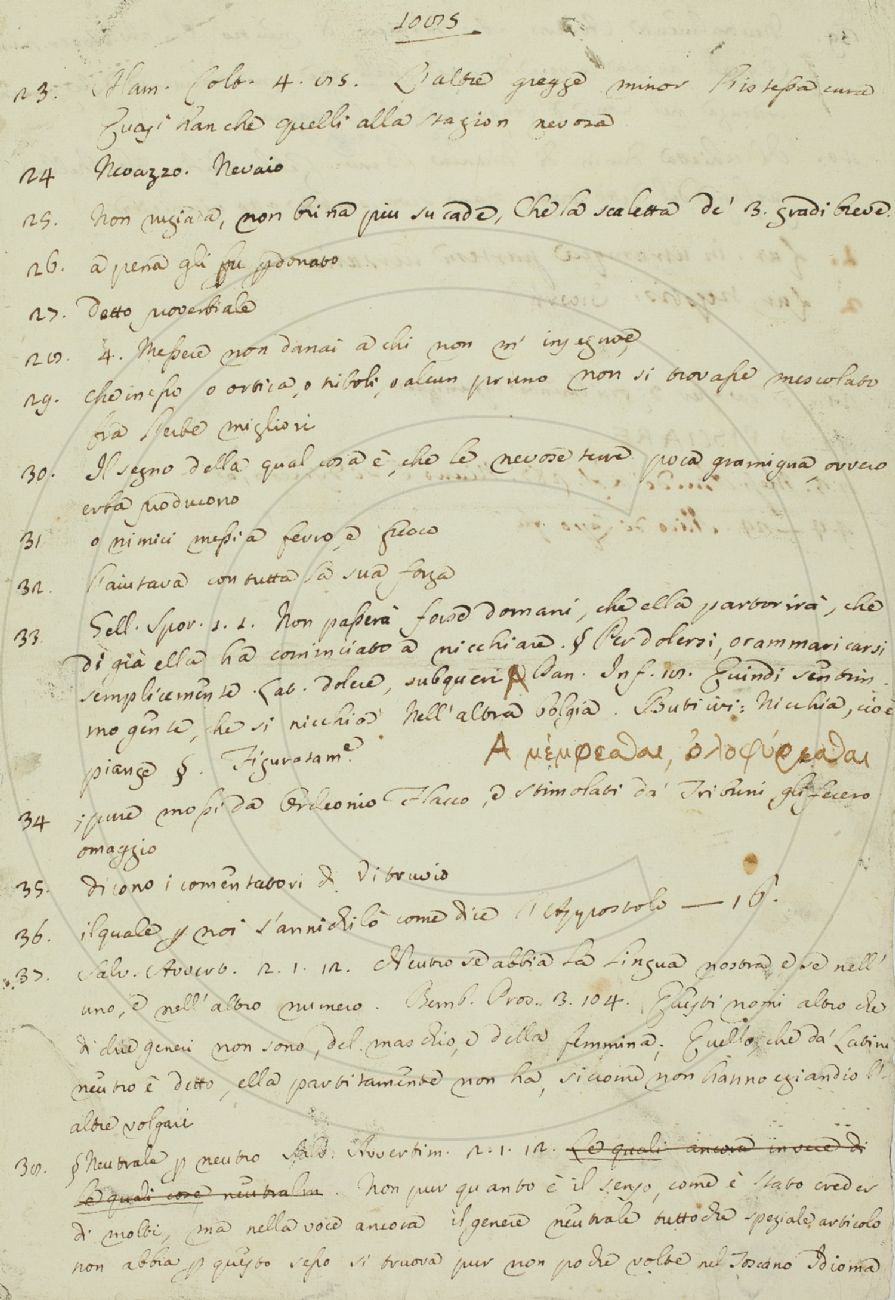 23. Alam. Colt. 4. 85. L'altre gregge minor l'istessa cura
Quasi han che quelli alla stagion nevosa
24 Nevazzo. Nevaio
25. Non rugiada, non brina piu su cade, Che la scaletta de' 3. gradi breve.
26. a pena gli fu perdonato
27. detto proverbiale
28. 4. Messere non danai a chi non m'insegnove
29. che in esso o ortica, o triboli, o alcun pruno non si trovasse mescolato
tra l'erbe migliori
30. Il segno della qual cosa è, che le nevose terre poca gramigna, ovvero
erba producono
31 o nimici messi a ferro, e fuoco
32. l'aiutava con tutta la sua forza
33 Gell. Spor. 1. 1. Non passerà forse domani, che ella partorirà, che
di già ella ha cominciato a nicchiare. § Per dolersi, o rammaricarsi
semplicemente. Lat. dolere, subqueri A Dan. Inf. 18. Quindi sentim
mo gente, che si nicchia Nell'altra bolgia. But. ivi: Nicchia, cioè
piange §. Figuratam.e
A μέμφεσθαι, ὀλοφύρεσθαι
34 ; pure mossi da Ordeonio Flacco, e stimolati da' Tribuni gli fecero
omaggio
35. dicono i comentatori di Vitruvio
36. il quale p noi s'annichilò come dice l'Appostolo — 16.
37. Salv. Avvert. 2. 1. 12. Neutro se abbia la lingua nostra, e se nell'
uno, e nell'altro numero. Bemb. Pros. 3. 104. Questi nomi altro che
di due generi non sono, del maschio, e della femmina; Quello, che da' Latini
neutro è detto, ella partitamente non ha, siccome non hanno eziandio l'
altre volgari
38. § Neutrale p neutro Salv. Avvertim. 2. 1. 12. Le quali ancora in vece di
le quali cose neutralm. Non pur quanto è il senso, come è stato creder
di molti, ma nella voce ancora il genere neutrale tutto che speziale articolo
non abbia p questo sesso si truova pur non poche volte nel Toscano Idioma